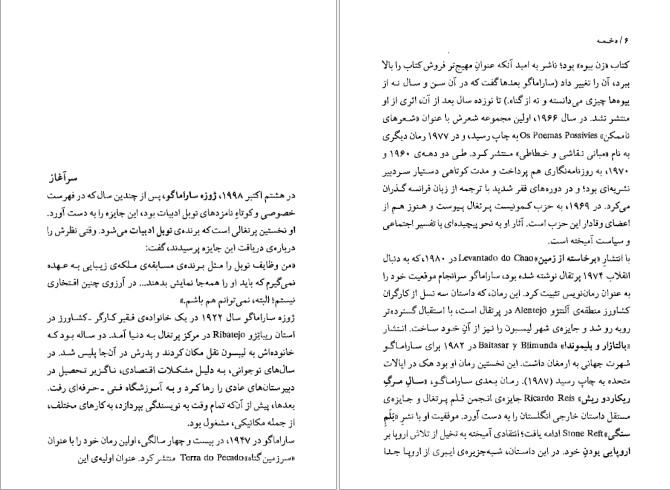 سرآغاز
در هشتم اکتبر ۱۹۹۸، ژوزه ساراماگو، پس از چندین سال که در فهرست
خصوصی و کوتاهِ نامزدهای نوبل ادبیات بود، این جایزه را به دست آورد.
او نخستین پرتغالی است که برنده‌ی نوبل ادبیات می‌شود. وقتی نظرش را
درباره‌ی دریافت این جایزه پرسیدند، گفت:
«من وظایف نوبل را مثل برنده‌ی مسابقه‌ی ملکه‌ی زیبایی به عهده
نمی‌گیرم که باید او را همه‌جا نمایش بدهند... در آرزوی چنین افتخاری
نیستم؛ البته، نمی‌توانم هم باشم.»
ژوزه ساراماگو سال ۱۹۲۲ در یک خانواده‌ی فقیر کارگر ـ کشاورز در
استان ریباتژو Ribatejo در مرکز پرتغال به دنیا آمد. دو ساله بود که
خانواده‌اش به لیسبون نقل مکان کردند و پدرش در آن‌جا پلیس شد. در
سال‌های نوجوانی، به دلیل مشکلات اقتصادی، ناگزیر تحصیل در
دبیرستان‌های عادی را رها کرد و به آموزشگاه فنی ـ حرفه‌ای رفت.
بعدها، پیش از آن‌که تمام وقت به نویسندگی بپردازد، به کارهای مختلف،
از جمله مکانیکی، مشغول بود.
ساراماگو در ۱۹۴۷، در بیست و چهار سالگی، اولین رمان خود را با عنوان
«سرزمین گناه» Terra do Pecado منتشر کرد. عنوان اولیه‌ی این
۶ / دخمه
کتاب «زن بیوه» بود؛ ناشر به امید آنکه عنوانِ مهیج‌تر فروش کتاب را بالا
ببرد، آن را تغییر داد (ساراماگو بعدها گفت که در آن سن و سال نه از
بیوه‌ها چیزی می‌دانسته و نه از گناه.) تا نوزده سال بعد از آن، اثری از او
منتشر نشد. در سال ۱۹۶۶، اولین مجموعه شعرش با عنوان «شعرهای
ناممکن» Os Poemas Possivies به چاپ رسید، و در ۱۹۷۷ رمان دیگری
به نام «مبانی نقاشی و خطاطی» منتشر کرد. طی دو دهه‌ی ۱۹۶۰ و
۱۹۷۰، به روزنامه‌نگاری هم پرداخت و مدت کوتاهی دستیار سردبیر
نشریه‌ای بود؛ و در دوره‌های فقر شدید با ترجمه از زبان فرانسه گذران
می‌کرد. در ۱۹۶۹، به حزب کمونیست پرتغال پیوست و هنوز هم از
اعضای وفادار این حزب است. آثار او به نحو پیچیده‌ای با تفسیر اجتماعی
و سیاست آمیخته است.
با انتشار «برخاسته از زمین» Levantado do Chao در ۱۹۸۰، که به دنبال
انقلاب ۱۹۷۴ پرتغال نوشته شده بود، ساراماگو سرانجام موقعیت خود را
به عنوان رمان‌نویس تثبیت کرد. این رمان، که داستان سه نسل از کارگران
کشاورز منطقه‌ی آلنتژو Alentejo در پرتغال است، با استقبال گسترده‌تر
روبه رو شد و جایزه‌ی شهر لیسبون را نیز از آنِ خود ساخت. انتشار
«بالتازار و بلیموندا» Baltasar y Blimunda در ۱۹۸۲ برای ساراماگو
شهرت جهانی به ارمغان داشت. این نخستین رمان او بود هک در ایالات
متحده به چاپ رسید (۱۹۸۷). رمان بعدی ساراماگو، «سالِ مرگِ
ریکاردو ریش» Ricardo Reis جایزه‌ی انجمن قلم پرتغال و جایزه‌ی
مستقل داستان خارجی انگلستان را به دست آورد. موفقیت او با نشرِ «بَلَمِ
سنگی» Stone Reft ادامه یافت؛ انتقادی آمیخته به تخیل از تلاش اروپا بر
اروپایی بودنِ خود. در این داستان، شبه‌جزیره‌ی ایبری از اروپا جدا